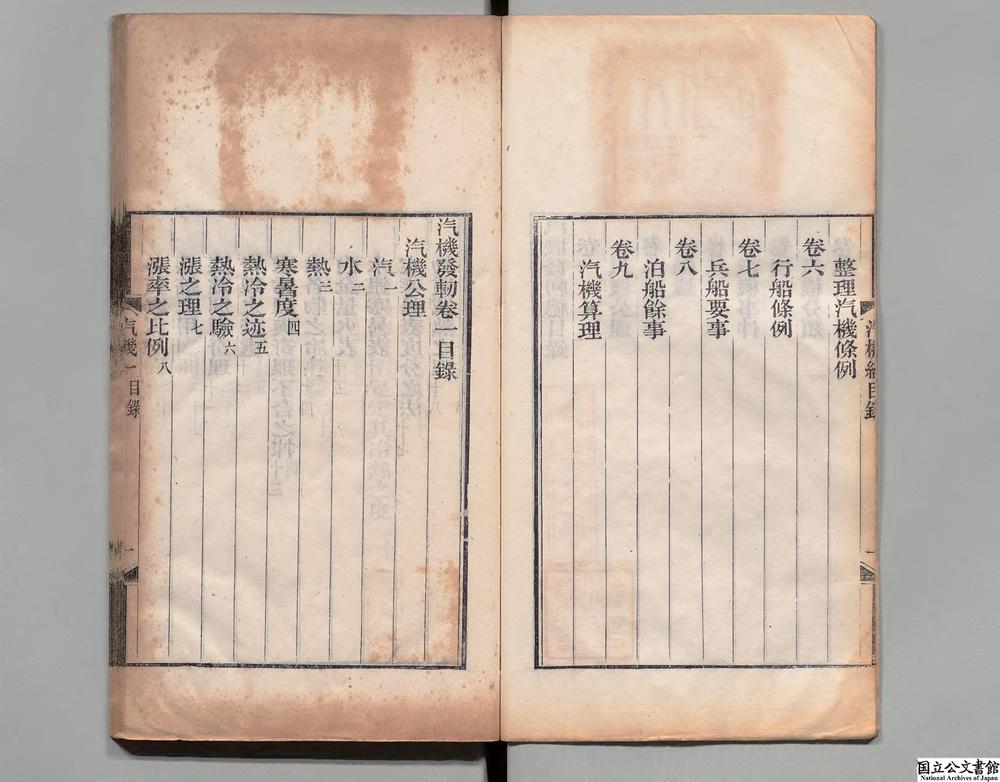 整理汽機條例
卷六
行船條例
卷七
兵船要事
卷八
泊船餘事
卷九
汽機算理
汽機發軔卷一目錄
汽機公理
汽一
水二
熱三
寒暑度四
熱冷之迹五
熱冷之驗六
漲之理七
漲率之比例八
汽機一目錄
一
国立公文書館
National Archives of Japan